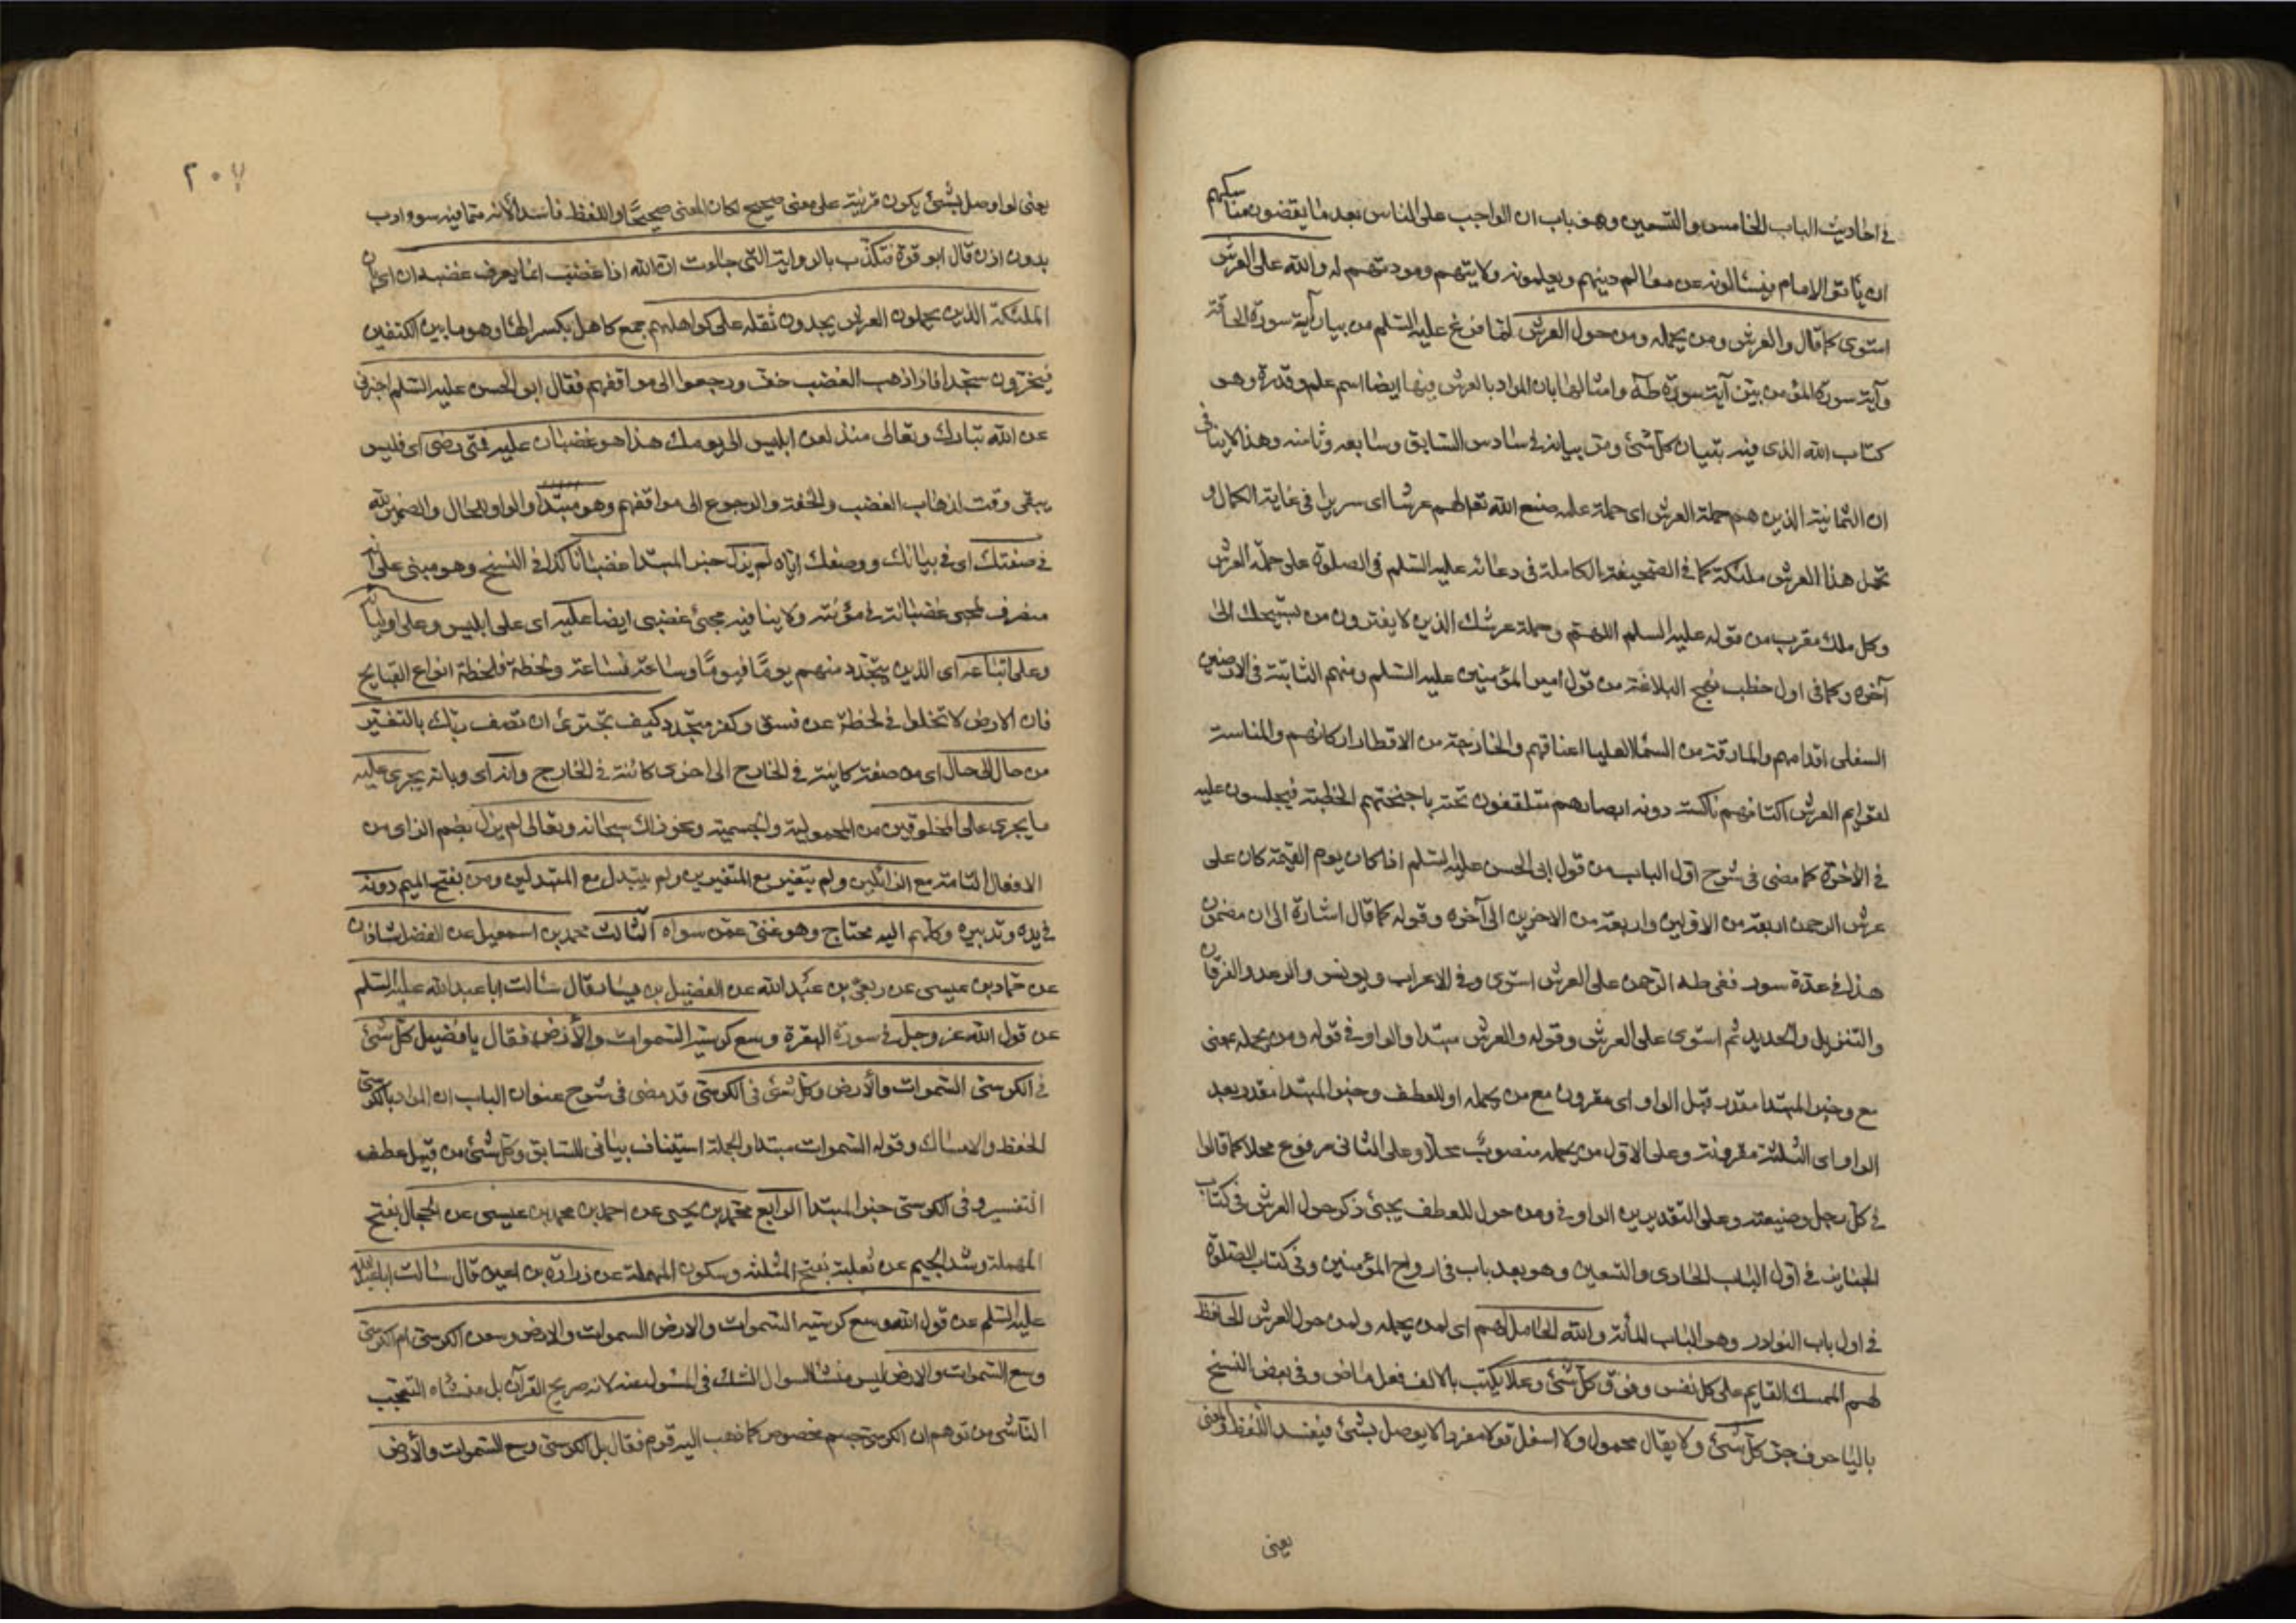 في احاديث الباب الخامس والتسعين وهو باب ان الواجب على الناس بعد ما يقضون مناسكهم
ان يأتوا الامام فيسألونه عن معالم دينهم ويعلمونه ولايتهم ومودتهم له والله على العرش
استوى كما قال والعرش ومن يحمله ومن حول العرش لما فرغ عليه السلم من بيان آية سورة الحاقة
وآية سورة المؤمن بين آية سورة طه وامثالها بان المراد بالعرش فيها ايضا اسم علم وقدرة وهو
كتاب الله الذي فيه تبيان كل شئ ومر بيانه في سادس السابق وسابعه وثامنه وهذا لا ينافي
ان الثمانية الذين هم حملة العرش اى حملة علمه صنع الله تعالى لهم عرشا اى سريرا في غاية الكمال و
تحمل هذا العرش ملئكة كما في الصحيفة الكاملة في دعائه عليه السلم في الصلوة على حملة العرش
وكل ملك مقرب من قوله عليه السلم اللهم وحملة عرشك الذين لا يفترون من تسبيحك الى
آخره وكما في اول خطب نهج البلاغة من قول امير المؤمنين عليه السلم ومنهم الثابتة في الارضين
السفلى اقدامهم والمارقة من السماء العليا اعناقهم والخارجة من الاقطار اركانهم والمناسبة
لقوايم العرش اكتافهم ناكسة دونه ابصارهم متلفعون تحته باجنحتهم فيجلسون عليه
في الآخرة كما مضى في شرح اول الباب من قول ابى الحسن عليه السلم اذا كان يوم القيمة كان على
عرش الرحمن اربعة من الاولين واربعة من الاخرين الى آخره وقوله كما قال اشارة الى ان مضمون
هذا في عدة سور ففي طه الرحمن على العرش استوى وفي الاعراف ويونس والرعد والفرقان
والتنزيل والحديد ثم استوى على العرش وقوله والعرش مبتدا والواو في قوله ومن يحمله بمعنى
مع وخبر المبتدا مقدر قبل الواو اى مقرون مع من يحمله او للعطف وخبر المبتدا مقدر بعد
الواو اى الثلثة مقرونة وعلى الاول من يحمله منصوب محلا وعلى الثاني مرفوع محلا كما قالوا
في كل رجل وضيعته وعلى التقديرين الواو في ومن حول للعطف يجئ ذكر حول العرش في كتاب
الجنايز في اول الباب الحادي والتسعين وهو بعد باب في ارواح المؤمنين وفي كتاب الصلوة
في اول باب النوادر وهو الباب المأئة والله الحامل لهم اى لمن يحمله ولمن حول العرش الحافظ
لهم الممسك القايم على كل نفس وفوق كل شئ وعلا يكتب بالالف فعل ماض وفي بعض النسخ
باليا حرف جر كل شئ ولا يقال محمول ولا اسفل قولا مفردا لا يوصل بشئ فيفسد اللفظ والمعنى
يعنى
٢٠٧
يعنى لو اوصل بشئ يكون قرينة على معنى صحيح لكان المعنى صحيحا واللفظ فاسدا لانه مما فيه سوء ادب
بدون اذن قال ابو قرة فتكذب بالرواية التى جاءت ان الله اذا غضب انما يعرف غضبه ان اى بان
الملئكة الذين يحملون العرش يجدون ثقله على كواهلهم جمع كاهل بكسر الها وهو ما بين الكتفين
فيخرون سجدا فاذا ذهب الغضب خف ورجعوا الى مواقفهم فقال ابو الحسن عليه السلم اخبرني
عن الله تبارك وتعالى منذ لعن ابليس الى يومك هذا هو غضبان عليه فمتى رضى اى فليس
يبقى وقت لذهاب الغضب والخفة والرجوع الى مواقفهم وهو مبتدا والواو للحال والضمير لله
في صفتك اى في بيانك ووصفك اياه لم يزل خبر المبتدا غضبانا كذا في النسخ وهو مبنى على انه
منصرف لمجئ غضبانة في مؤنثه ولا ينافيه مجئ غضبى ايضا عليه اى على ابليس وعلى اوليائه
وعلى اتباعه اى الذين يتجدد منهم يوما فيوما وساعة فساعة ولحظة فلحظة انواع القبايح
فان الارض لا تخلوا في لحظة عن فسق وكفر متجدد كيف تجترئ ان تصف ربك بالتغير
من حال الى حال اى من صفة كاينة في الخارج الى اخرى كائنة في الخارج وانه اى وبانه يجرى عليه
ما يجرى على المخلوقين من المحمولية والجسمية ونحو ذلك سبحانه وتعالى لم يزل بضم الزاى من
الافعال التامة مع الزائلين ولم يتغير مع المتغيرين ولم يتبدل مع المتبدلين ومن بفتح الميم دونه
في يده وتدبيره وكلهم اليه محتاج وهو غنى عمن سواه الثالث محمد بن اسمعيل عن الفضل شاذان
عن حماد بن عيسى عن ربعى بن عبد الله عن الفضيل بن يسار قال سألت ابا عبد الله عليه السلم
عن قول الله عز وجل في سورة البقرة وسع كرسيه السموات والأرض فقال يا فضيل كل شئ
في الكرسى السموات والأرض وكل شئ في الكرسى قد مضى في شرح عنوان الباب ان المراد بالكرسى
الحفظ والامساك وقوله السموات مبتدا والجملة استيناف بيانى للسابق وكل شئ من قبيل عطف
التفسير وفى الكرسى خبر المبتدا الرابع محمد بن يحيى عن احمد بن محمد بن عيسى عن الحجال بفتح
المهملة وشد الجيم عن ثعلبة بفتح المثلثة وسكون المهملة عن زرارة بن اعين قال سألت ابا عبد الله
عليه السلم عن قول الله وسع كرسيه السموات والارض السموات والارض وسعن الكرسى ام الكرسى
وسع السموات والارض ليس منشأ السوال الشك في المسؤل عنه لانه صريح القرآن بل منشاه التعجب
الناشى من توهم ان الكرسى جسم مخصوص كما ذهب اليه قوم فقال بل الكرسى وسع السموات والأرض